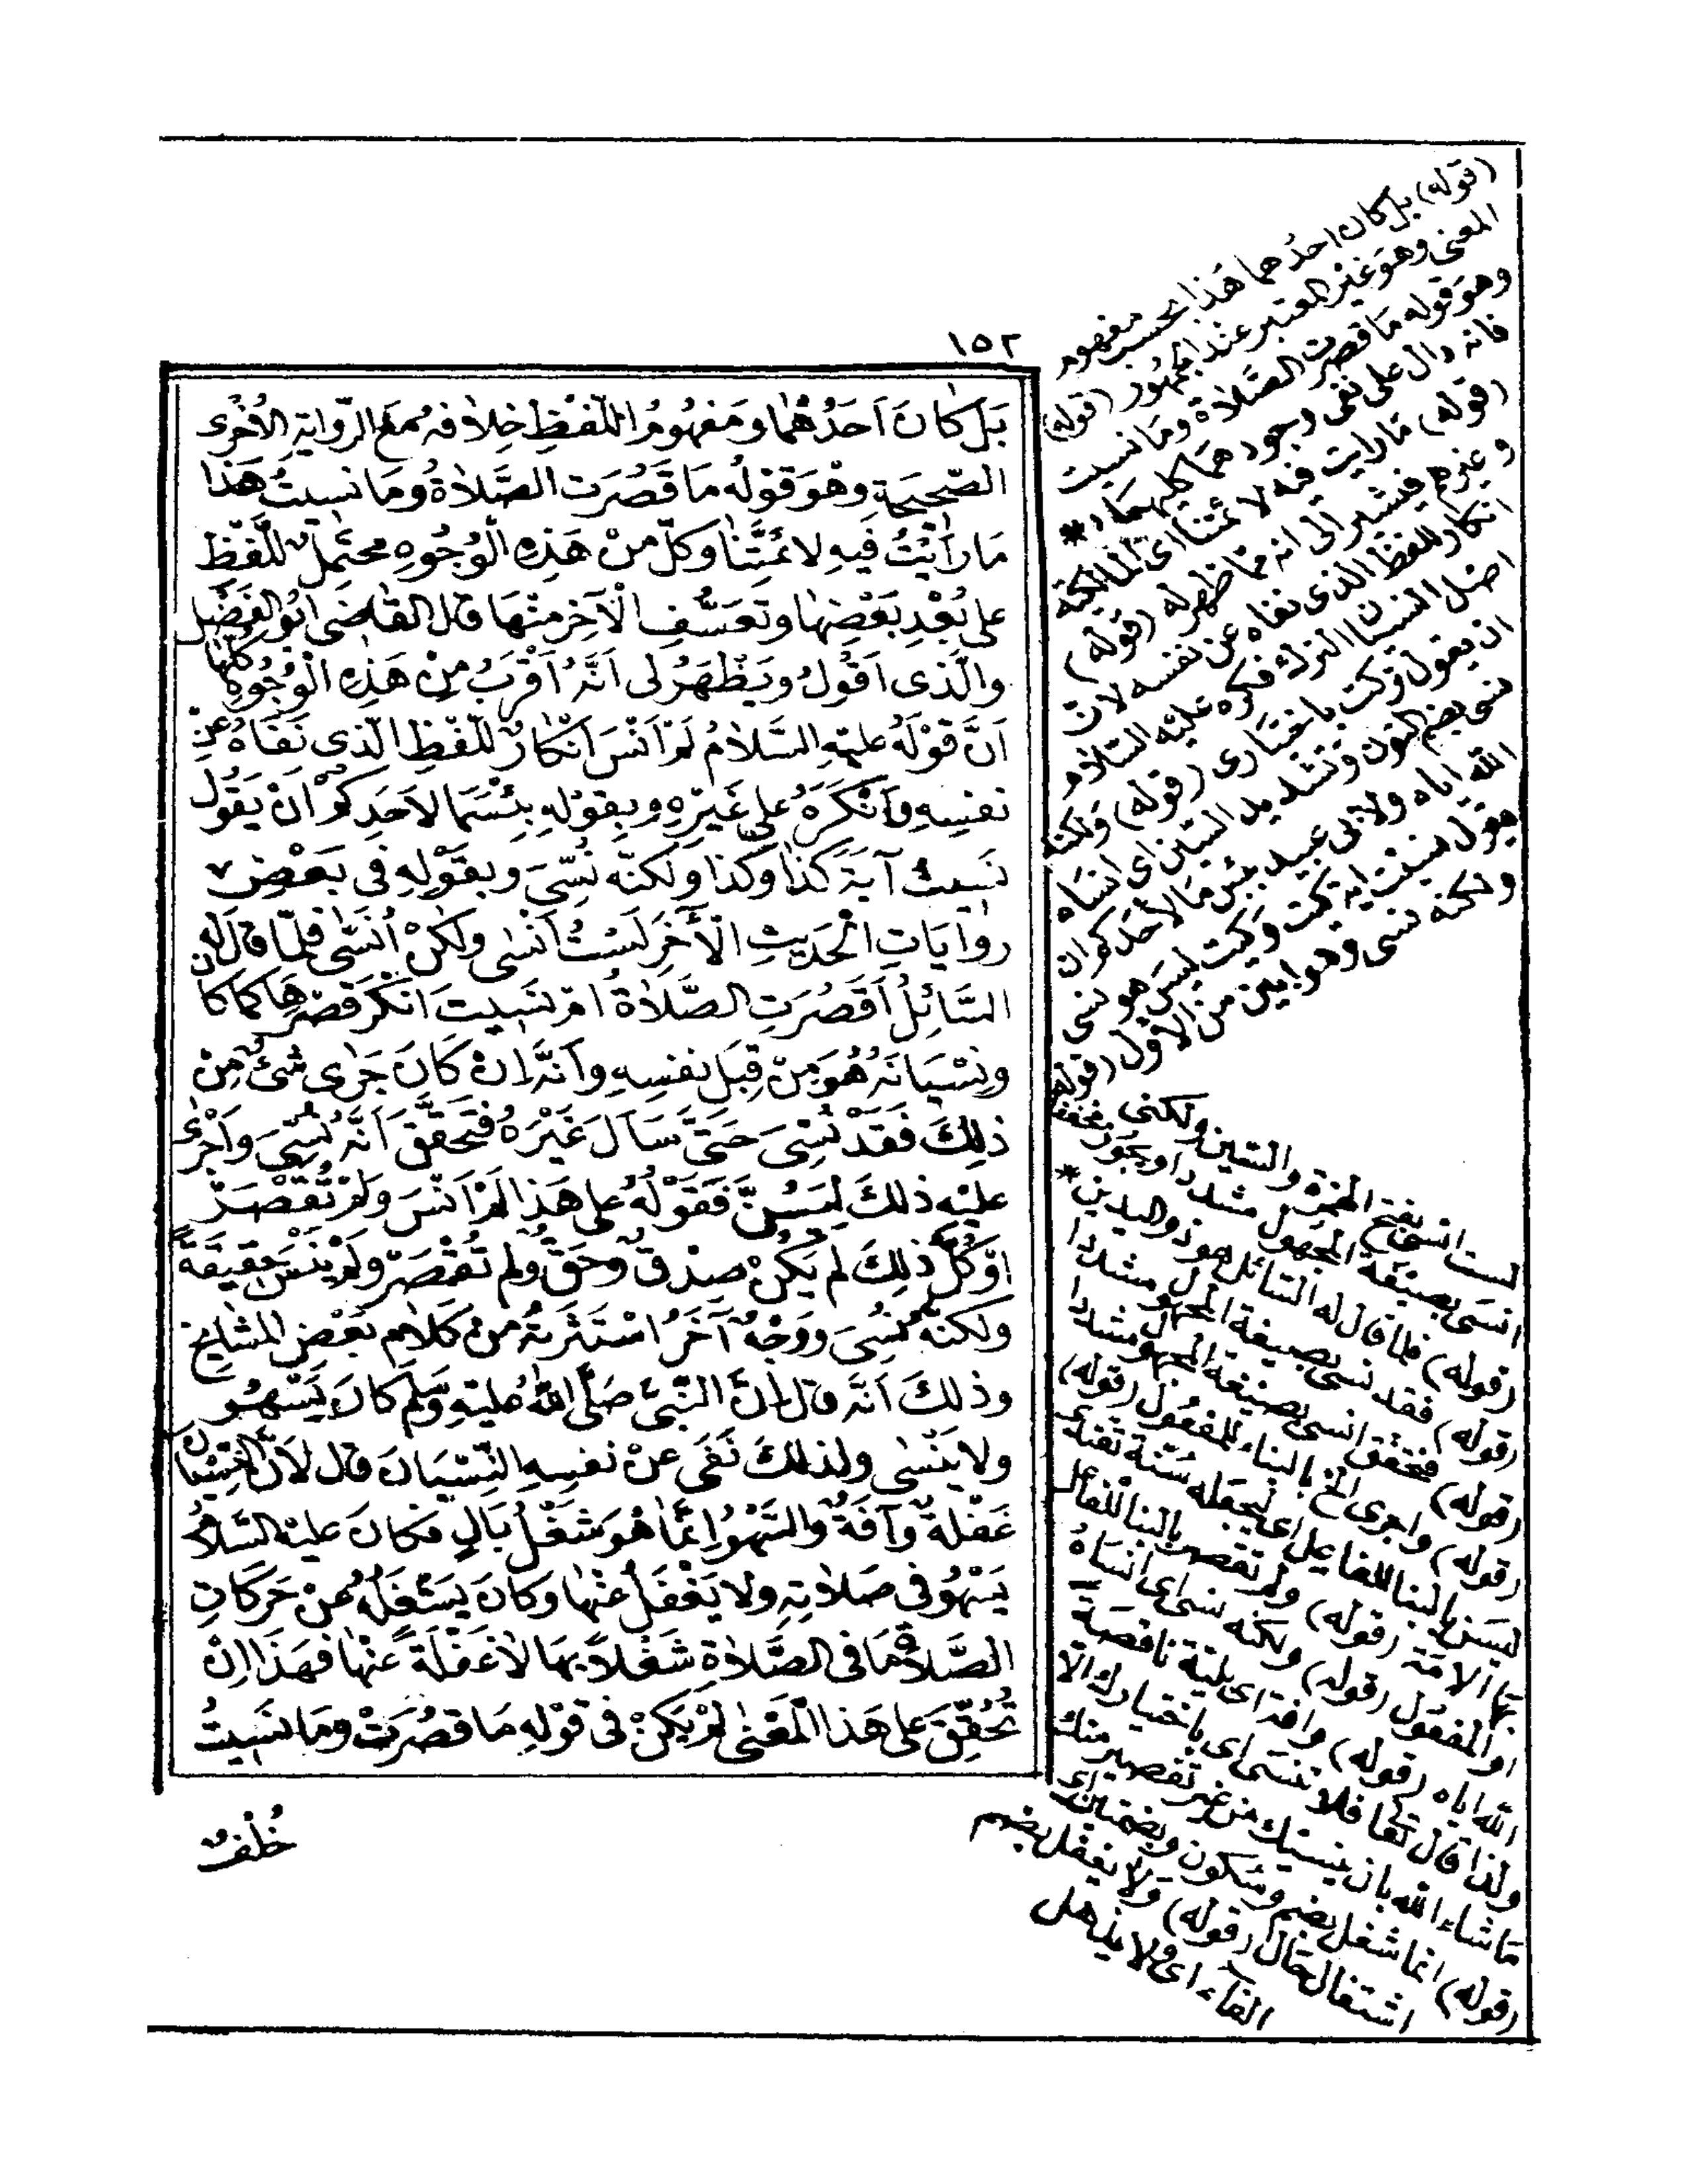 ١٥٢
بَلْ كَانَ اَحَدُهُمَا وَمَفْهُومُ اللَّفْظِ خِلَافُهُ مَعَ الرِّوَايَةِ الْاُخْرَى
الصَّحِيحَةِ وَهُوَ قَوْلُهُ مَا قَصُرَتِ الصَّلَاةُ وَمَا نَسِيتُ هَذَا
مَا رَاَيْتُ فِيهِ لِاَئِمَّتِنَا وَكُلٌّ مِنْ هَذِهِ الْوُجُوهِ مُحْتَمِلٌ لِلَّفْظِ
عَلَى بُعْدِ بَعْضِهَا وَتَعَسُّفِ الْآخَرِ مِنْهَا قَالَ الْقَاضِى اَبُو الْفَضْلِ
وَالَّذِى اَقُولُ وَيَظْهَرُ لِى اَنَّهُ اَقْرَبُ مِنْ هَذِهِ الْوُجُوهِ كُلِّهَا
اَنَّ قَوْلَهُ عَلَيْهِ السَّلَامُ لَمْ اَنْسَ اِنْكَارٌ لِلَّفْظِ الَّذِى نَفَاهُ عَنْ
نَفْسِهِ وَاَنْكَرَهُ عَلَى غَيْرِهِ وَبِقَوْلِهِ بِئْسَمَا لِاَحَدِكُمْ اَنْ يَقُولَ
نَسِيتُ آيَةَ كَذَا وَكَذَا وَلَكِنَّهُ نُسِّىَ وَبِقَوْلِهِ فِى بَعْضِ
رِوَايَاتِ الْحَدِيثِ الْآخَرِ لَسْتُ اَنْسَى وَلَكِنْ اُنَسَّى فَلَمَّا قَالَ لَهُ
السَّائِلُ اَقَصُرَتِ الصَّلَاةُ اَمْ نَسِيتَ اَنْكَرَ قَصْرَهَا كَمَا كَانَ
وَنِسْيَانَهُ هُوَ مِنْ قِبَلِ نَفْسِهِ وَاَنَّهُ اِنْ كَانَ جَرَى شَىْءٌ مِنْ
ذَلِكَ فَقَدْ نُسِّىَ حَتَّى سَاَلَ غَيْرَهُ فَتَحَقَّقَ اَنَّهُ نُسِّىَ وَاُجْرِىَ
عَلَيْهِ ذَلِكَ لِيَسُنَّ فَقَوْلُهُ عَلَى هَذَا لَمْ اَنْسَ وَلَمْ تُقْصَرْ
اَوْ كُلُّ ذَلِكَ لَمْ يَكُنْ صِدْقٌ وَحَقٌّ وَلَمْ تُقْصَرْ وَلَمْ يَنْسَ حَقِيقَةً
وَلَكِنَّهُ نُسِّىَ وَوَجْهٌ آخَرُ اسْتَثَرْتُهُ مِنْ كَلَامِ بَعْضِ الْمَشَايِخِ
وَذَلِكَ اَنَّهُ قَالَ اِنَّ النَّبِىَّ صَلَّى اللّٰهُ عَلَيْهِ وَسَلَّمَ كَانَ يَسْهُو
وَلَا يَنْسَى وَلِذَلِكَ نَفَى عَنْ نَفْسِهِ النِّسْيَانَ قَالَ لِاَنَّ النِّسْيَانَ
غَفْلَةٌ وَآفَةٌ وَالسَّهْوُ اِنَّمَا هُوَ شَغْلُ بَالٍ فَكَانَ عَلَيْهِ السَّلَامُ
يَسْهُو فِى صَلَاتِهِ وَلَا يَغْفُلُ عَنْهَا وَكَانَ يَشْغَلُهُ عَنْ حَرَكَاتِ
الصَّلَاةِ مَا فِى الصَّلَاةِ شَغْلًا بِهَا لَا غَفْلَةً عَنْهَا فَهَذَا اِنْ
تُحُقِّقَ عَلَى هَذَا الْمَعْنَى لَمْ يَكُنْ فِى قَوْلِهِ مَا قَصُرَتْ وَمَا نَسِيتُ
خُلْفٌ
(قوله) بل كان احدهما هذا بحسب مفهوم
المعنى وهو غير المعتبر عند الجمهور (قوله)
وهو قوله ما قصرت الصلاة وما نسيت
فانه دال على نفى وجودهما كليهما *
(قوله) ما رايت فيه لائمتنا اى المالكية
وغيرهم فيشير الى انه مما ظهر له (قوله)
انكار للفظ الذى نفاه عن نفسه لان
اصل النسيان الترك فكره عليه السلام
ان يقول تركت باختيارى (قوله) ولكنه
نسى بضم النون وتشديد السين اى انساه
الله اياه ولابى عبيد بئس ما لاحدكم ان
يقول نسيت اية كيت وكيت ليس هو نسى
ولكنه نسى وهو ابين من الاول (قوله)
لست انسى بفتح الهمزة والسين ولكنى
انسى بصيغة المجهول مشددا ويجوز مخففا
(قوله) فلما قال له السائل هو ذو اليدين *
(قوله) فقد نسى بصيغة المجهول مشددا
(قوله) فتحقق انسى بصيغة المجهول مشددا
(قوله) واجرى الخ بالبناء للمفعول (قوله)
ليسن بالبنا للفاعل اى ليجعله سنة تقتدى
بها الامة (قوله) ولم تقصر بالبنا للفاعل
او المفعول (قوله) ولكنه نسى اى انساه
الله اياه (قوله) وافة اى بلية ناقصة
ولذا قال تعا فلا تنسى اى باختيارك الا
ما شاء الله بان ينسيك من غير تقصير منك
(قوله) انما شغل بضم وسكون وبضمتين اى
اشتغال حال (قوله) ولا يغفل بضم
الفاء اى ولا يذهل